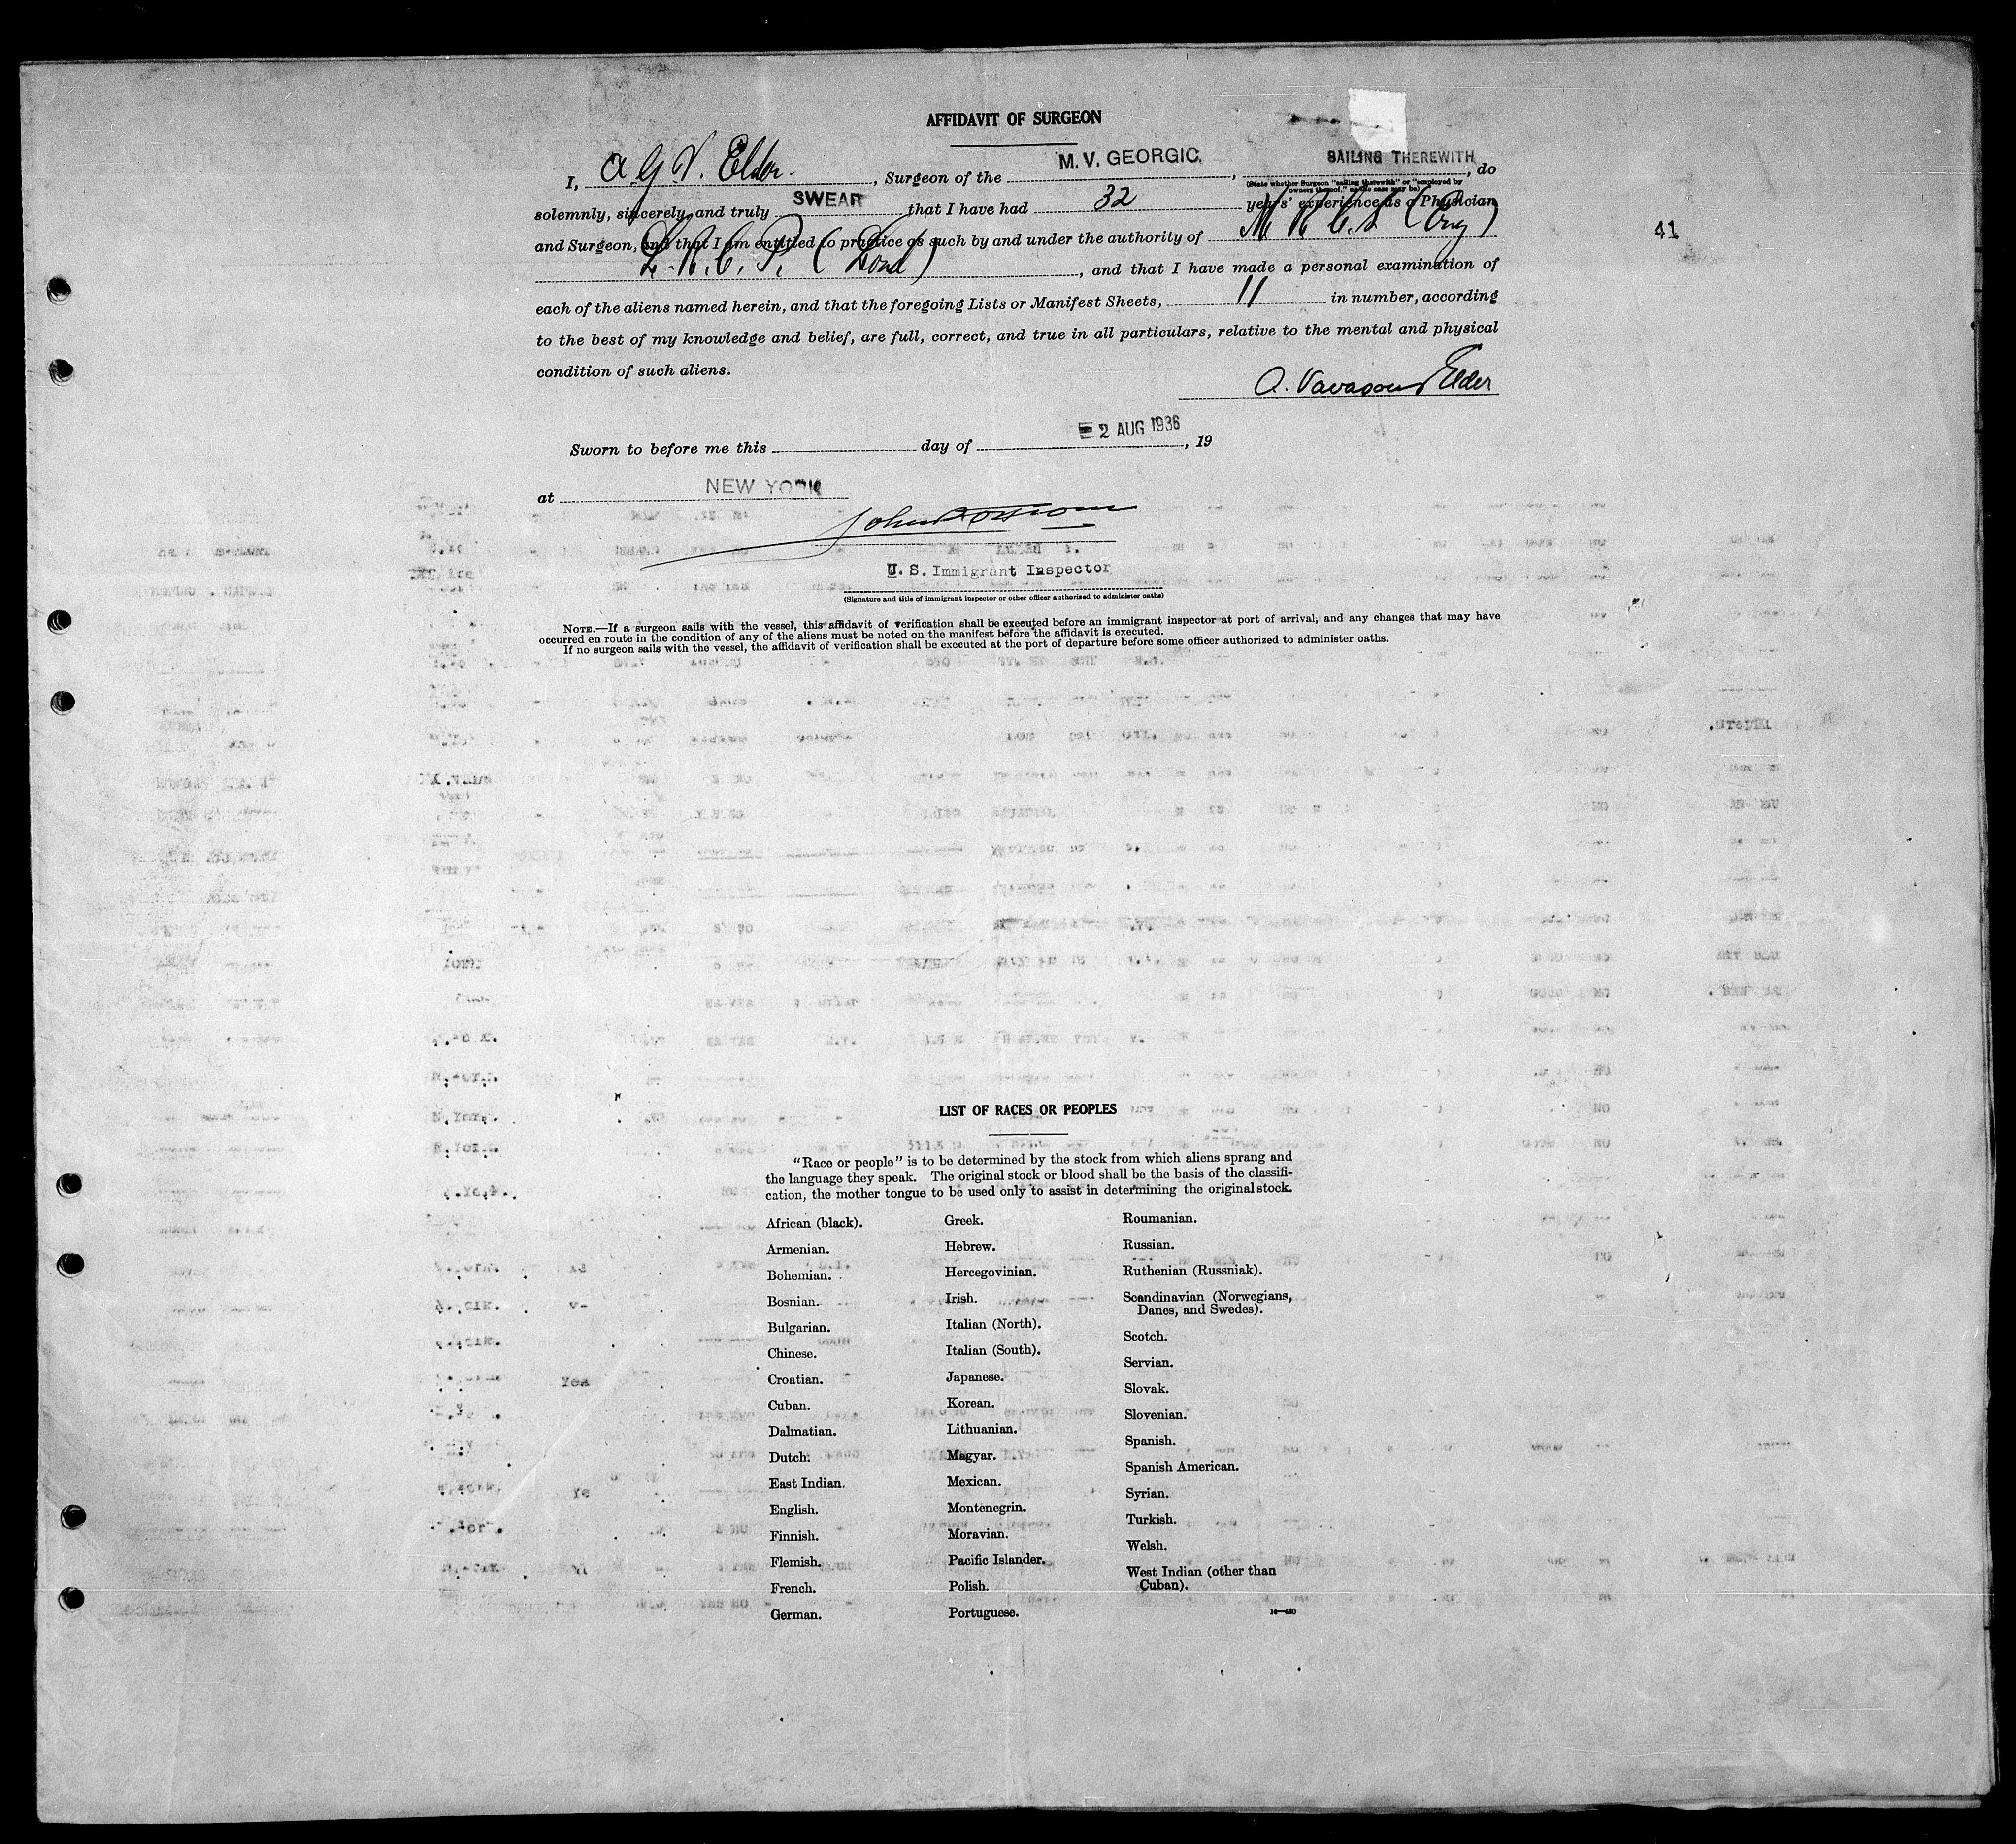 AFFIDAVIT OF SURGEON
I, A. G. V. Elder, Surgeon of the M. V. GEORGIC, SAILING THEREWITH, do
(State whether Surgeon "sailing therewith" or "employed by
owners thereof," as the case may be)
solemnly, sincerely, and truly SWEAR that I have had 32 years' experience as a Physician
and Surgeon, and that I am entitled to practice as such by and under the authority of M.R.C.S. (Eng)
L.R.C.P. (Lond), and that I have made a personal examination of
41
each of the aliens named herein, and that the foregoing Lists or Manifest Sheets, 11 in number, according
to the best of my knowledge and belief, are full, correct, and true in all particulars, relative to the mental and physical
condition of such aliens.
A. Vavasour Elder
Sworn to before me this day of 2 AUG 1936, 19
at NEW YORK
U. S. Immigrant Inspector
(Signature and title of immigrant inspector or other officer authorized to administer oaths)
NOTE.—If a surgeon sails with the vessel, this affidavit of verification shall be executed before an immigrant inspector at port of arrival, and any changes that may have
occurred en route in the condition of any of the aliens must be noted on the manifest before the affidavit is executed.
If no surgeon sails with the vessel, the affidavit of verification shall be executed at the port of departure before some officer authorized to administer oaths.
LIST OF RACES OR PEOPLES
"Race or people" is to be determined by the stock from which aliens sprang and
the language they speak. The original stock or blood shall be the basis of the classifi-
cation, the mother tongue to be used only to assist in determining the original stock.
African (black).
Armenian.
Bohemian.
Bosnian.
Bulgarian.
Chinese.
Croatian.
Cuban.
Dalmatian.
Dutch.
East Indian.
English.
Finnish.
Flemish.
French.
German.
Greek.
Hebrew.
Hercegovinian.
Irish.
Italian (North).
Italian (South).
Japanese.
Korean.
Lithuanian.
Magyar.
Mexican.
Montenegrin.
Moravian.
Pacific Islander.
Polish.
Portuguese.
Roumanian.
Russian.
Ruthenian (Russniak).
Scandinavian (Norwegians,
Danes, and Swedes).
Scotch.
Servian.
Slovak.
Slovenian.
Spanish.
Spanish American.
Syrian.
Turkish.
Welsh.
West Indian (other than
Cuban).
14—430